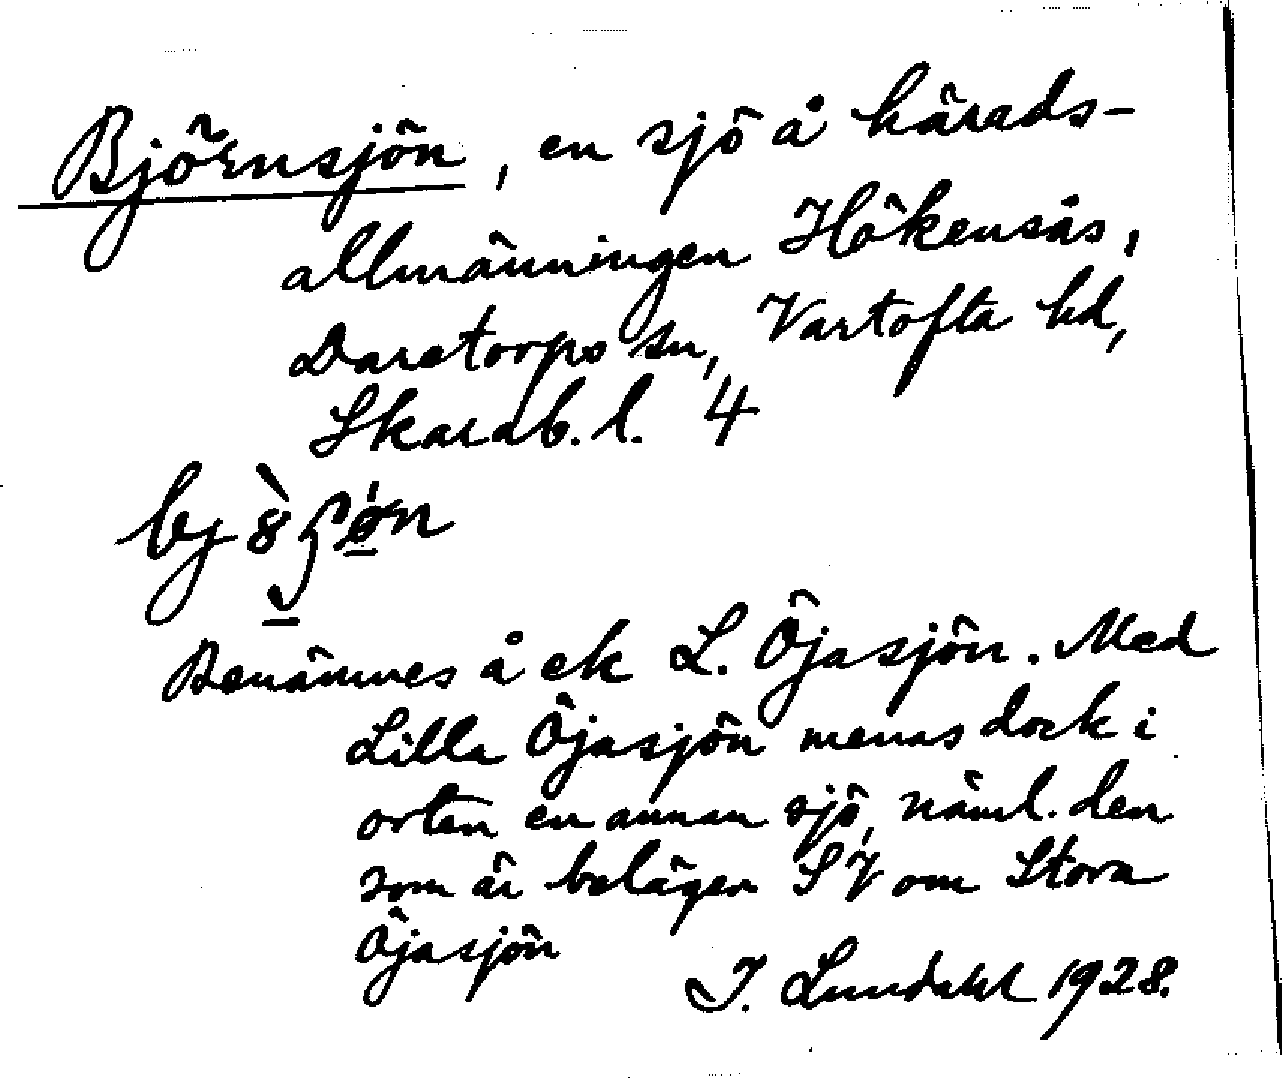 Björnsjön, en sjö å härads-
allmänningen Hökensås,
Daretorps sn, Vartofta hd,
Skarab. l. 4
Benämnes å ek L. Öjasjön. Med
Lilla Öjasjön menas dock i
orten en annan sjö, näml. den
som är belägen SV om Stora
Öjasjön
I. Lundahl 1928.